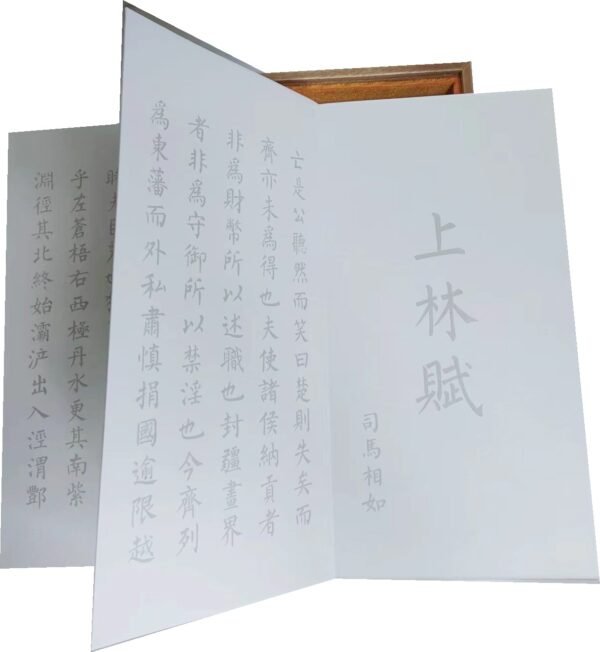 上林賦
司馬相如
亡是公听然而笑曰楚則失矣而
齊亦未為得也夫使諸侯納貢者
非為財幣所以述職也封疆畫界
者非為守御所以禁淫也今齊列
為東藩而外私肅慎捐國逾限越
乎左蒼梧右西極丹水更其南紫
淵徑其北終始灞浐出入涇渭酆